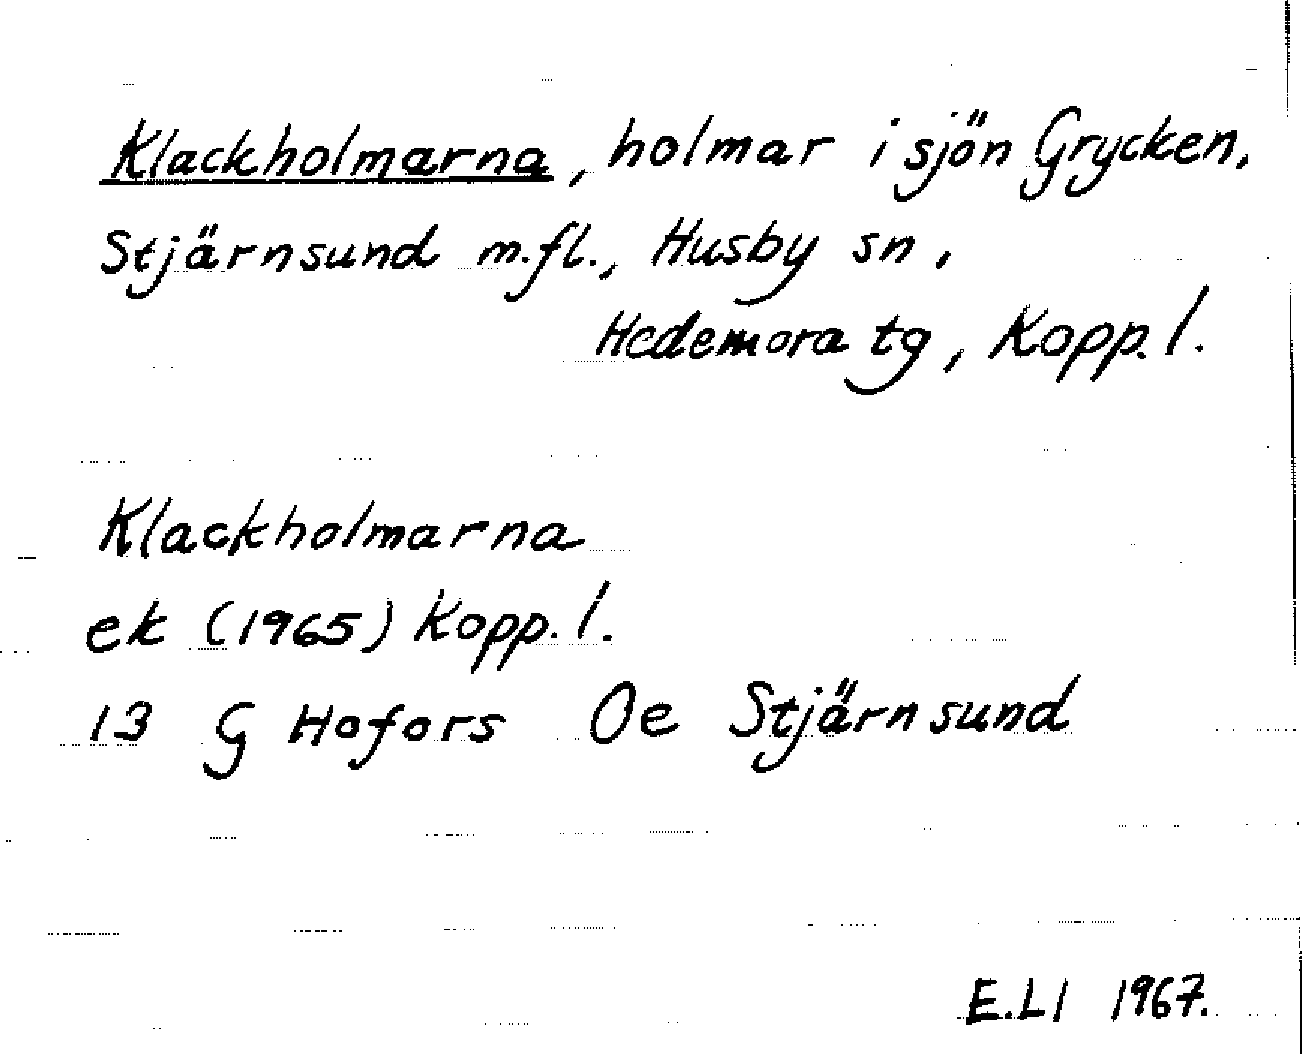 Klackholmarna, holmar i sjön Grycken,
Stjärnsund m.fl., Husby sn,
Hedemora tg, Kopp. l.
Klackholmarna
ek (1965) Kopp. l.
13 G Hofors Oe Stjärnsund
E.Ll 1967.